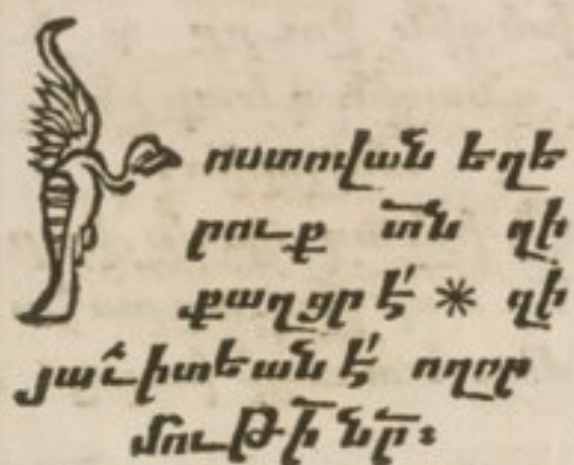 Խոստովան եղե
րուք տն զի
քաղցր է՛ ✳ զի
յաւիտեան է՛ ողոր
մութի նր։